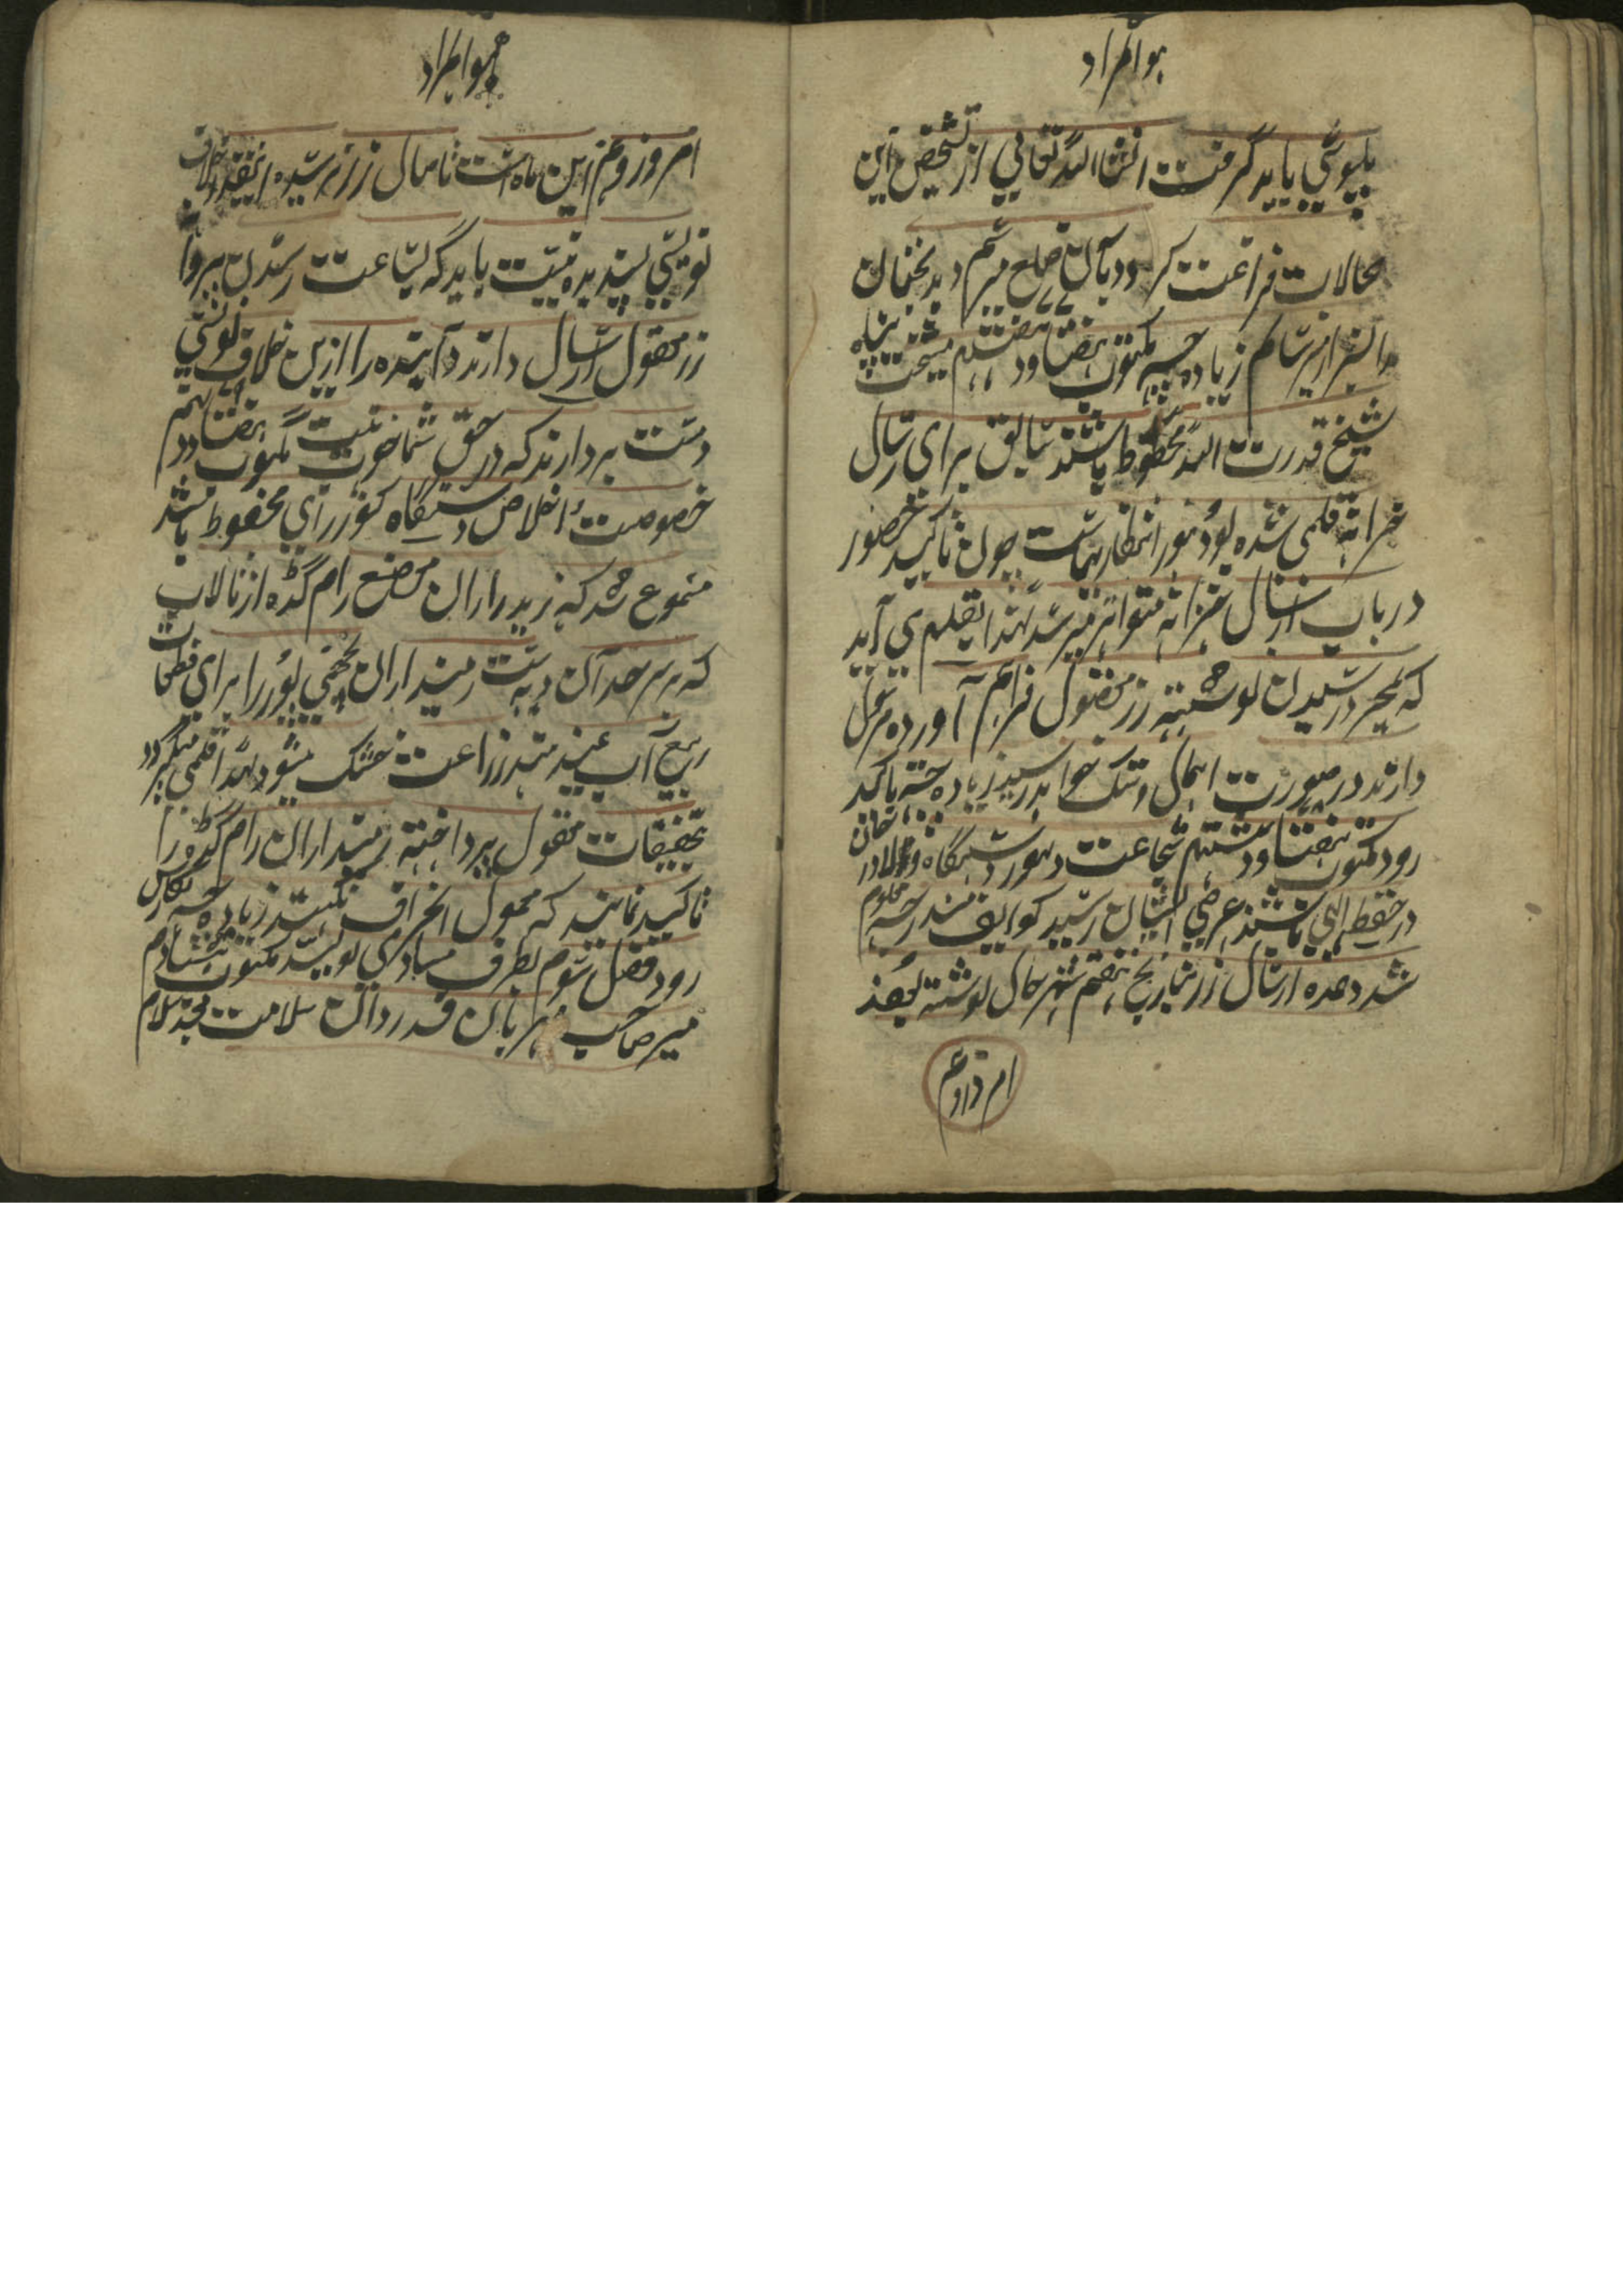 هو المراد
بپوشی باید گرفت انشا الله تعالی از تشخیص این
محالات فراغت کرده بآن ضلع میرسم و بدبختان
را بسزا میرسانم زیاده چه مکتوب هفتاد و هفتم مشیخت پناه
شیخ قدرت الله محفوظ باشند سابق برای ارسال
خزانه قلمی شده بود هنوز انتظار هاست چون تاکید حضور
در باب ارسال خزانه متواتر میرسد لهذا بقلم می آید
که بمجرد رسیدن نوشته زر معقول فراهم آورده مرسل
دارند در صورت اهمال دستک خواهد رسید زیاده چه تاکید
رود مکتوب هفتاد و هشتم شجاعت و تهور دستگاه دلاور خان
در حفظ الهی باشند عرضی ایشان رسید کوایف مندرجه معلوم
شد وعده ارسال زر بتاریخ هفتم شهر حال نوشته بودند
امروز دهم
هو المراد
امروز دهم این ماه است تا حال زر نرسیده اینقدر خلاف
نویسی پسندیده نیست باید که بساعت رسیدن پروانه
زر معقول ارسال دارند و آینده را ازین خلاف نویسی
دست بردارند که در حق شما خوب نیست مکتوب هفتاد و نهم
خصوصیت و اخلاص دستگاه کنور رای محفوظ باشند
مسموع شد که زمینداران موضع رام گده از تالاب
که بر سرحد آن دیه است زمینداران لچهمی پور را برای قطعات
ربیع آب نمیدهند زراعت خشک میشود لهذا قلمی میگردد
تحقیقات معقول پرداخته زمینداران رام گده را
تاکید نمایند که معمول انحراف نکنند زیاده چه نگارش
رود فصل سوم بطرف مساوی نویسد مکتوب هشتادم
میر صاحب مهربان قدردان سلامت بعد سلام